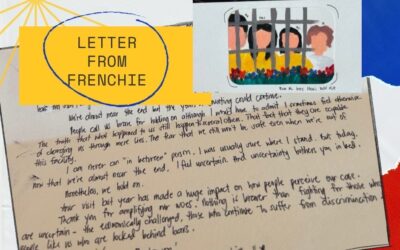 LETTER
FROM
FRENCHIE
We're almost near the end but the years of waiting could continue.
People call us brave for holding on although I would have to admit I sometimes feel otherwise.
The truth that what happened to us still happens to several others. That fact that they are capable
of changing us through mere lies. The fear that we still won't be safe even when we're out of
this facility.
I am never an "in between" person. I was usually sure where I stand. But today,
now that we're almost near the end. I feel uncertain. And uncertainty bothers you in bed.
Nonetheless, we hold on.
Your visit last year has made a huge impact on how people perceive our case.
Thank you for amplifying our voices, nothing is braver than fighting for those who
are uncertain - the economically challenged, those who continue to suffer from discrimination
people like us who are locked behind bars.